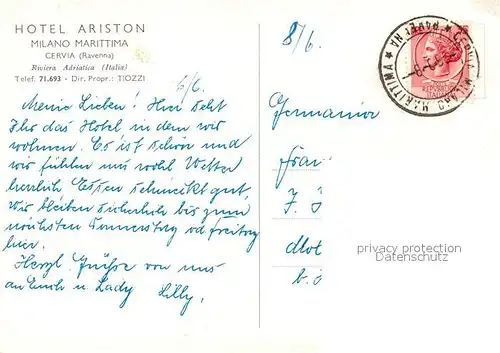 HOTEL ARISTON
MILANO MARITTIMA
CERVIA (Ravenna)
Riviera Adriatica (Italia)
Telef. 71.693 - Dir. Propr.: TIOZZI
6/6.
Meine Lieben! Hier seht
Ihr das Hotel in dem wir
wohnen. Es ist schön und
wir fühlen uns wohl Wetter
herrlich Essen schmeckt gut,
Wir bleiben sicherlich bis zum
nächsten Donnerstag od. freitag
hier.
Herzl. Grüße von uns
an Euch u. Lady Lilly.
8/6.
CERVIA MILANO MARITTIMA
Germania
Frau
J.
privacy protection
Datenschutz